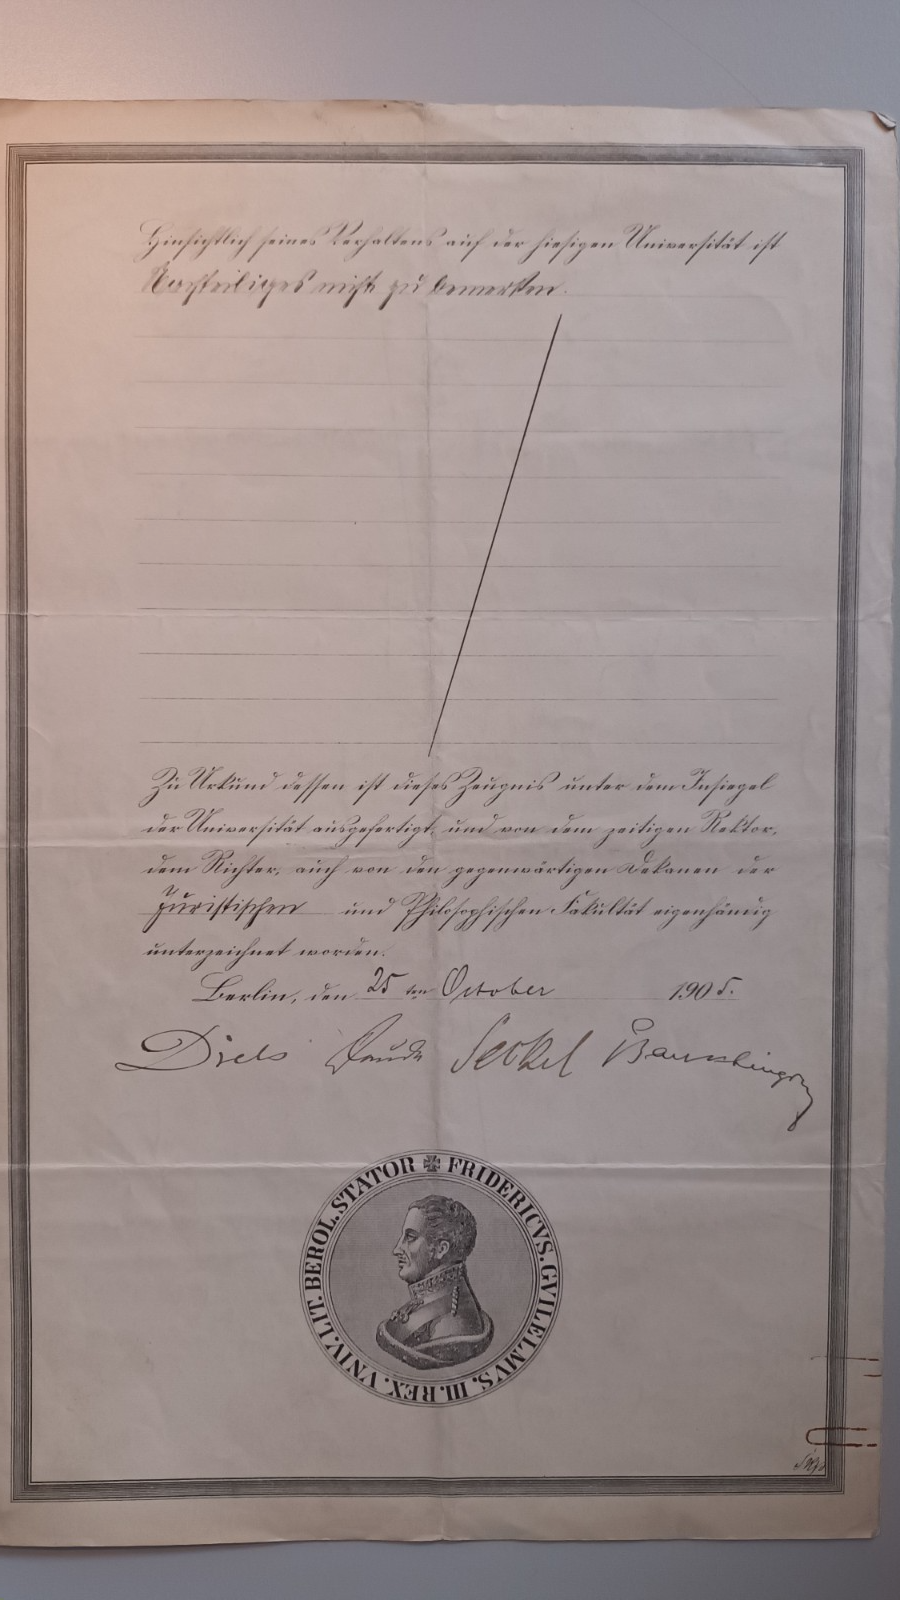 Hinsichtlich seines Verhaltens auf der hiesigen Universität ist
Nachteiliges nicht zu bemerken.
Zu Urkund dessen ist dieses Zeugnis unter dem Insiegel
der Universität ausgefertigt und von dem zeitigen Rektor,
dem Richter, auch von den gegenwärtigen Dekanen der
Juristischen und Philosophischen Fakultät eigenhändig
unterzeichnet worden.
Berlin, den 25 ten October 1905.
Diels Daude Seckel
FRIDERICVS. GVILELMVS. III. REX. VNIV. LIT. BEROL. STATOR